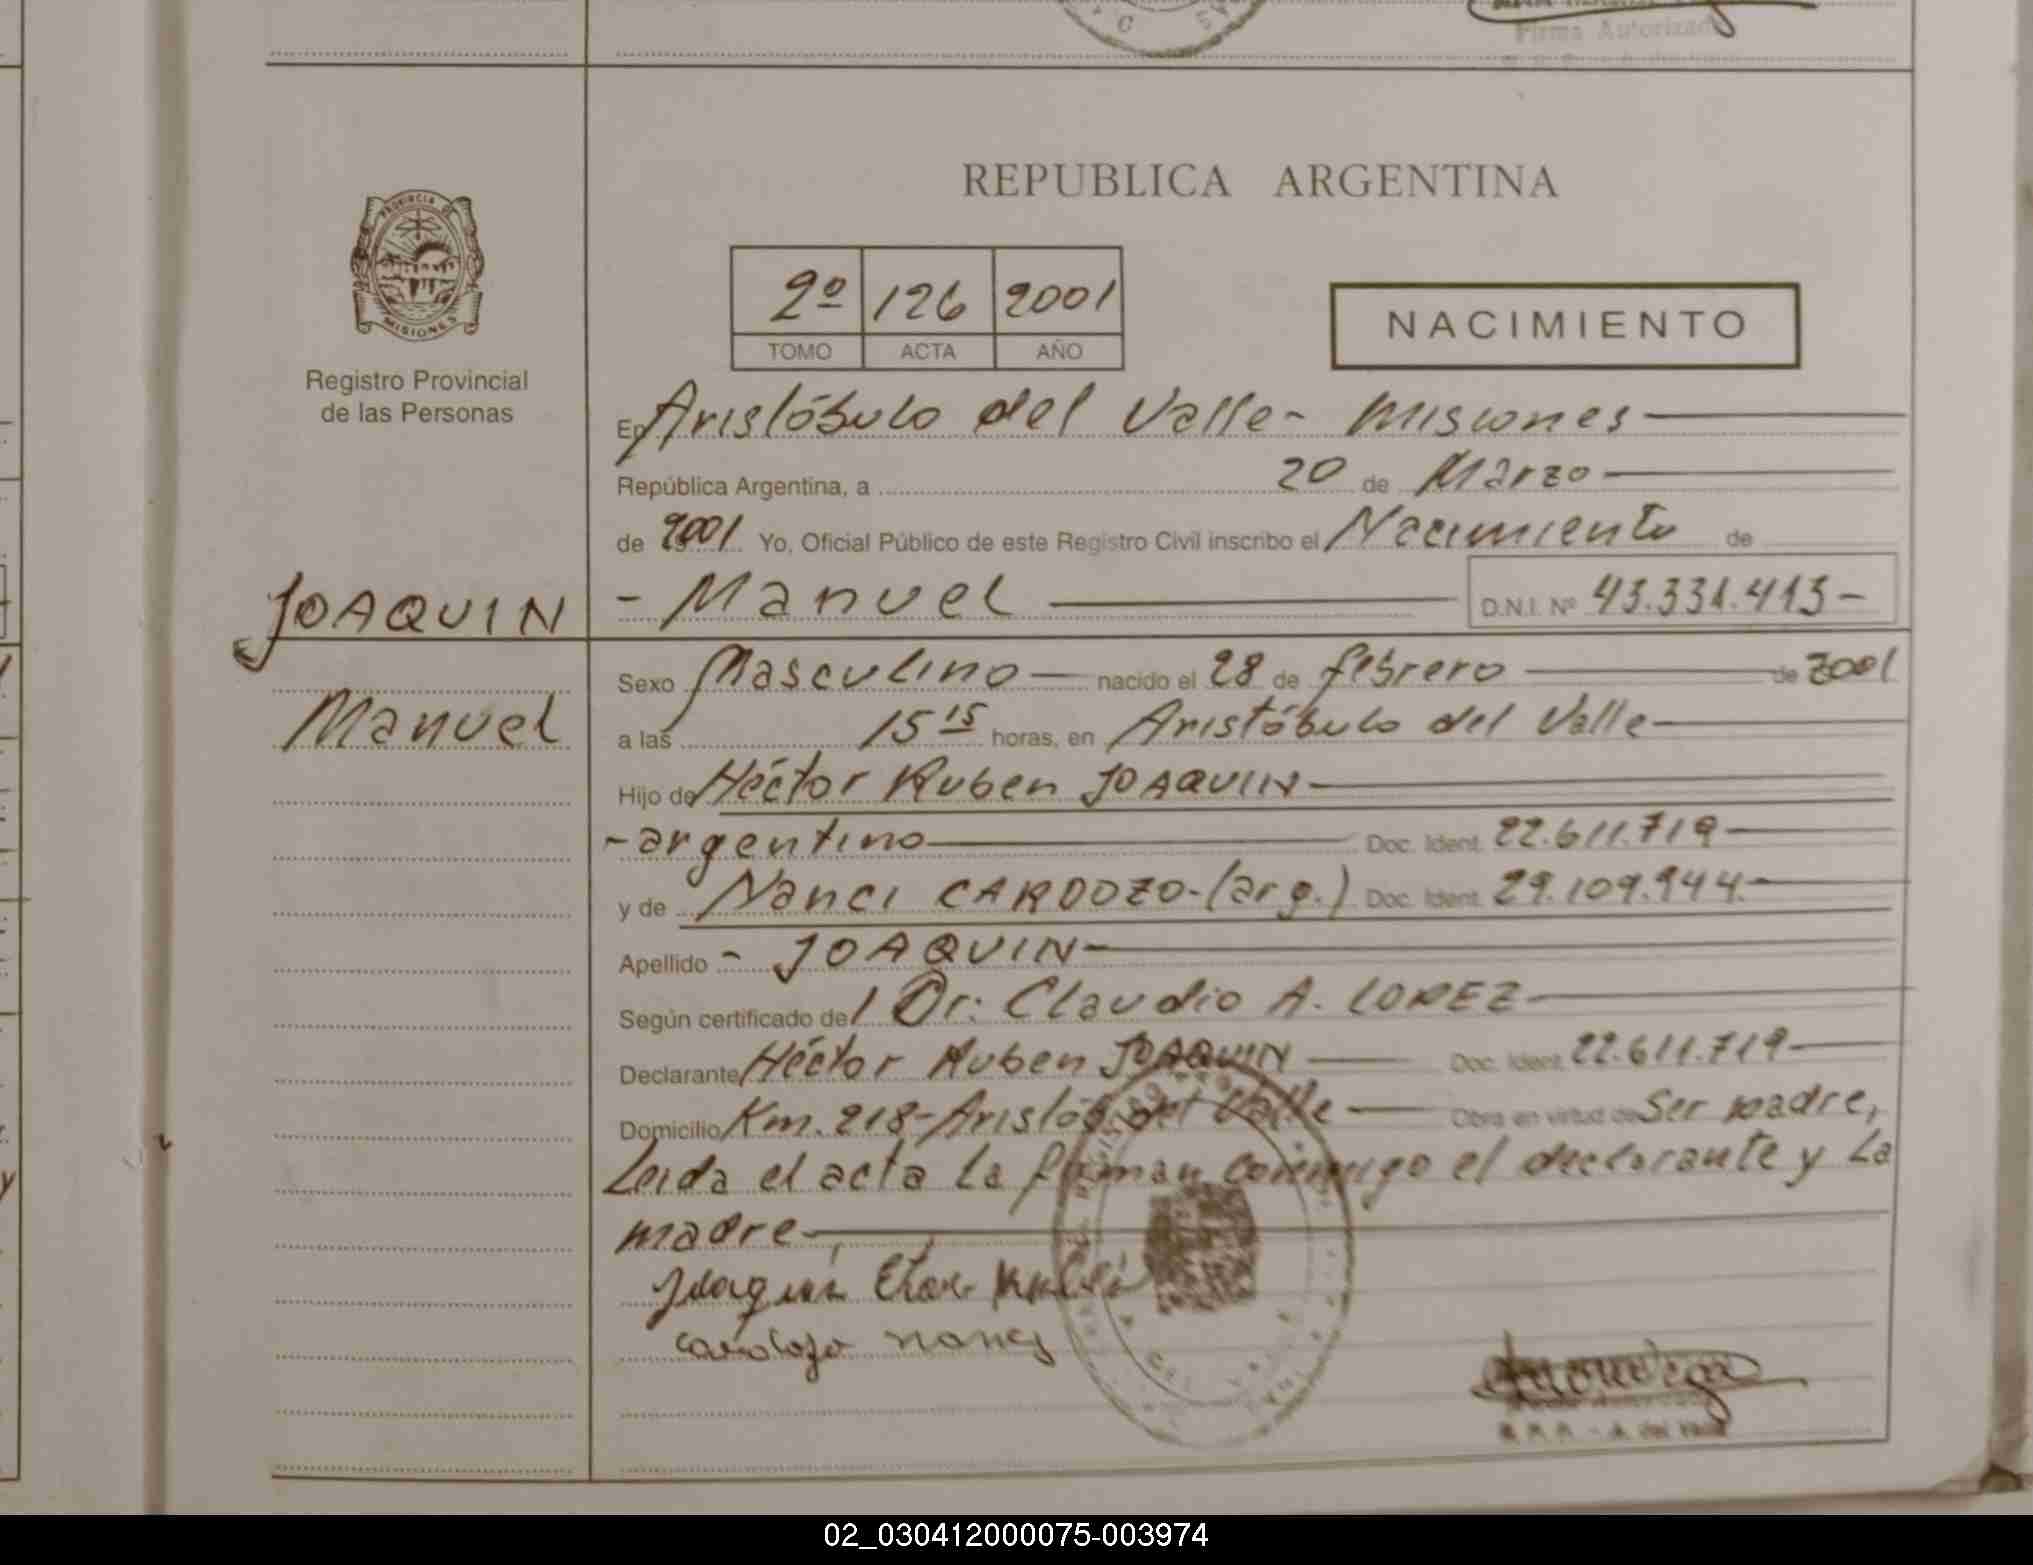 Firma Autorizada
PROVINCIA DE
MISIONES
Registro Provincial
de las Personas
REPUBLICA ARGENTINA
2º 126 2001
TOMO ACTA AÑO
NACIMIENTO
En Aristóbulo del Valle- Misiones
República Argentina, a 20 de Marzo
de 2001 Yo, Oficial Público de este Registro Civil inscribo el Nacimiento de
JOAQUIN
- Manuel D.N.I. Nº 43.331.413-
Manuel
Sexo Masculino nacido el 28 de febrero de 2001
a las 15 15 horas, en Aristóbulo del Valle
Hijo de Héctor Ruben JOAQUIN
-argentino Doc. Ident. 22.611.719
y de Nanci CARDOZO-(arg.) Doc. Ident. 29.109.944.
Apellido - JOAQUIN
Según certificado del Dr: Claudio A. LOPEZ
Declarante Héctor Ruben JOAQUIN Doc. Ident. 22.611.719
Domicilio Km. 218-Aristób. del Valle Obra en virtud de Ser padre,
Leida el acta la firman conmigo el declarante y La
madre
Joaquin
02_030412000075-003974